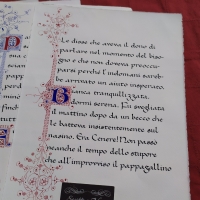 Le disse che aveva il dono di
parlare nel momento del biso-
gno e che non doveva preoccu-
parsi perché l'indomani sareb-
be arrivato un aiuto insperato.
Bianca tranquillizzata,
dormì serena. Fu svegliata
il mattino dopo da un becco che
le batteva insistentemente sul
nasino. Era Cènere! Non passò
neanche il tempo dello stupore
che all'improvviso il pappagallino